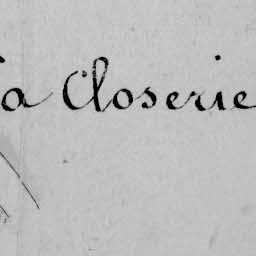 la Closerie